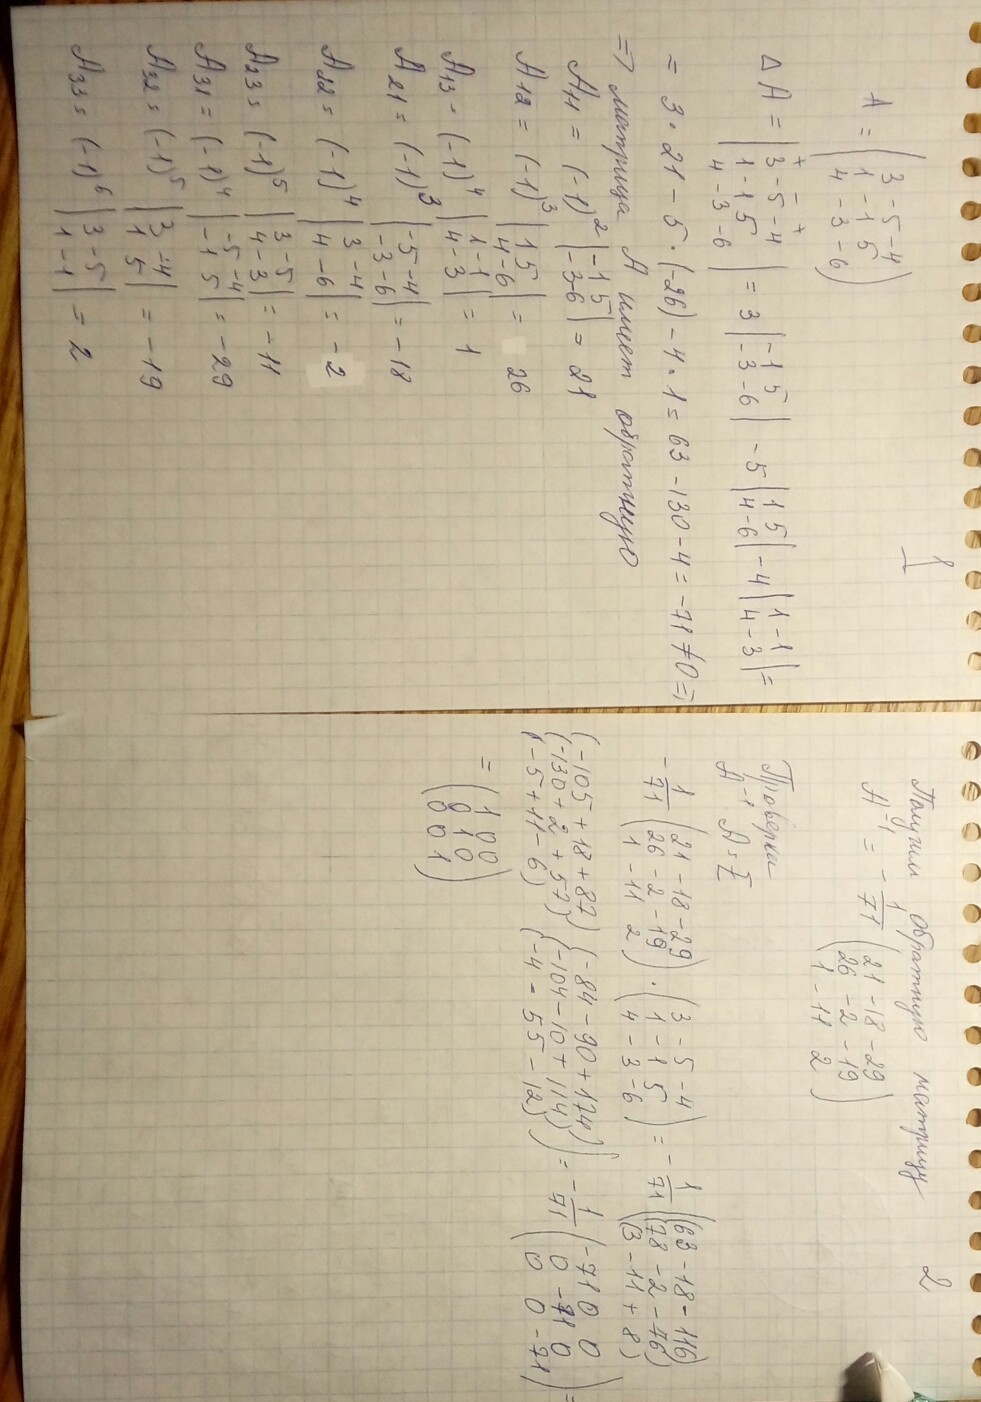 1
A = ( 3 -5 -4
1 -1 5
4 -3 -6 )
Δ A = | 3 -5 -4
1 -1 5
4 -3 -6 | = 3 | -1 5
-3 -6 | - 5 | 1 5
4 -6 | - 4 | 1 -1
4 -3 | =
= 3 · 21 - 5 · (-26) - 4 · 1 = 63 - 130 - 4 = -71 ≠ 0 ⇒
⇒ матрица A имеет обратную
A11 = (-1)² | -1 5
-3 -6 | = 21
A12 = (-1)³ | 1 5
4 -6 | = 26
A13 = (-1)⁴ | 1 -1
4 -3 | = 1
A21 = (-1)³ | -5 -4
-3 -6 | = -18
A22 = (-1)⁴ | 3 -4
4 -6 | = -2
A23 = (-1)⁵ | 3 -5
4 -3 | = -11
A31 = (-1)⁴ | -5 -4
-1 5 | = -29
A32 = (-1)⁵ | 3 -4
1 5 | = -19
A33 = (-1)⁶ | 3 -5
1 -1 | = 2
2
Получил обратную матрицу
A⁻¹ = - 1/71 ( 21 -18 -29
26 -2 -19
1 -11 2 )
Проверка
A⁻¹ A = E
- 1/71 ( 21 -18 -29
26 -2 -19
1 -11 2 ) · ( 3 -5 -4
1 -1 5
4 -3 -6 ) = - 1/71 ( (63 - 18 - 116)
(78 - 2 - 76)
(3 - 11 + 8)
(-105 + 18 + 87) (-84 - 90 + 174)
(-130 + 2 + 57) (-104 - 10 + 114)
(-5 + 11 - 6) (-4 - 55 - 12) ) = - 1/71 ( -71 0 0
0 -71 0
0 0 -71 ) =
= ( 1 0 0
0 1 0
0 0 1 )